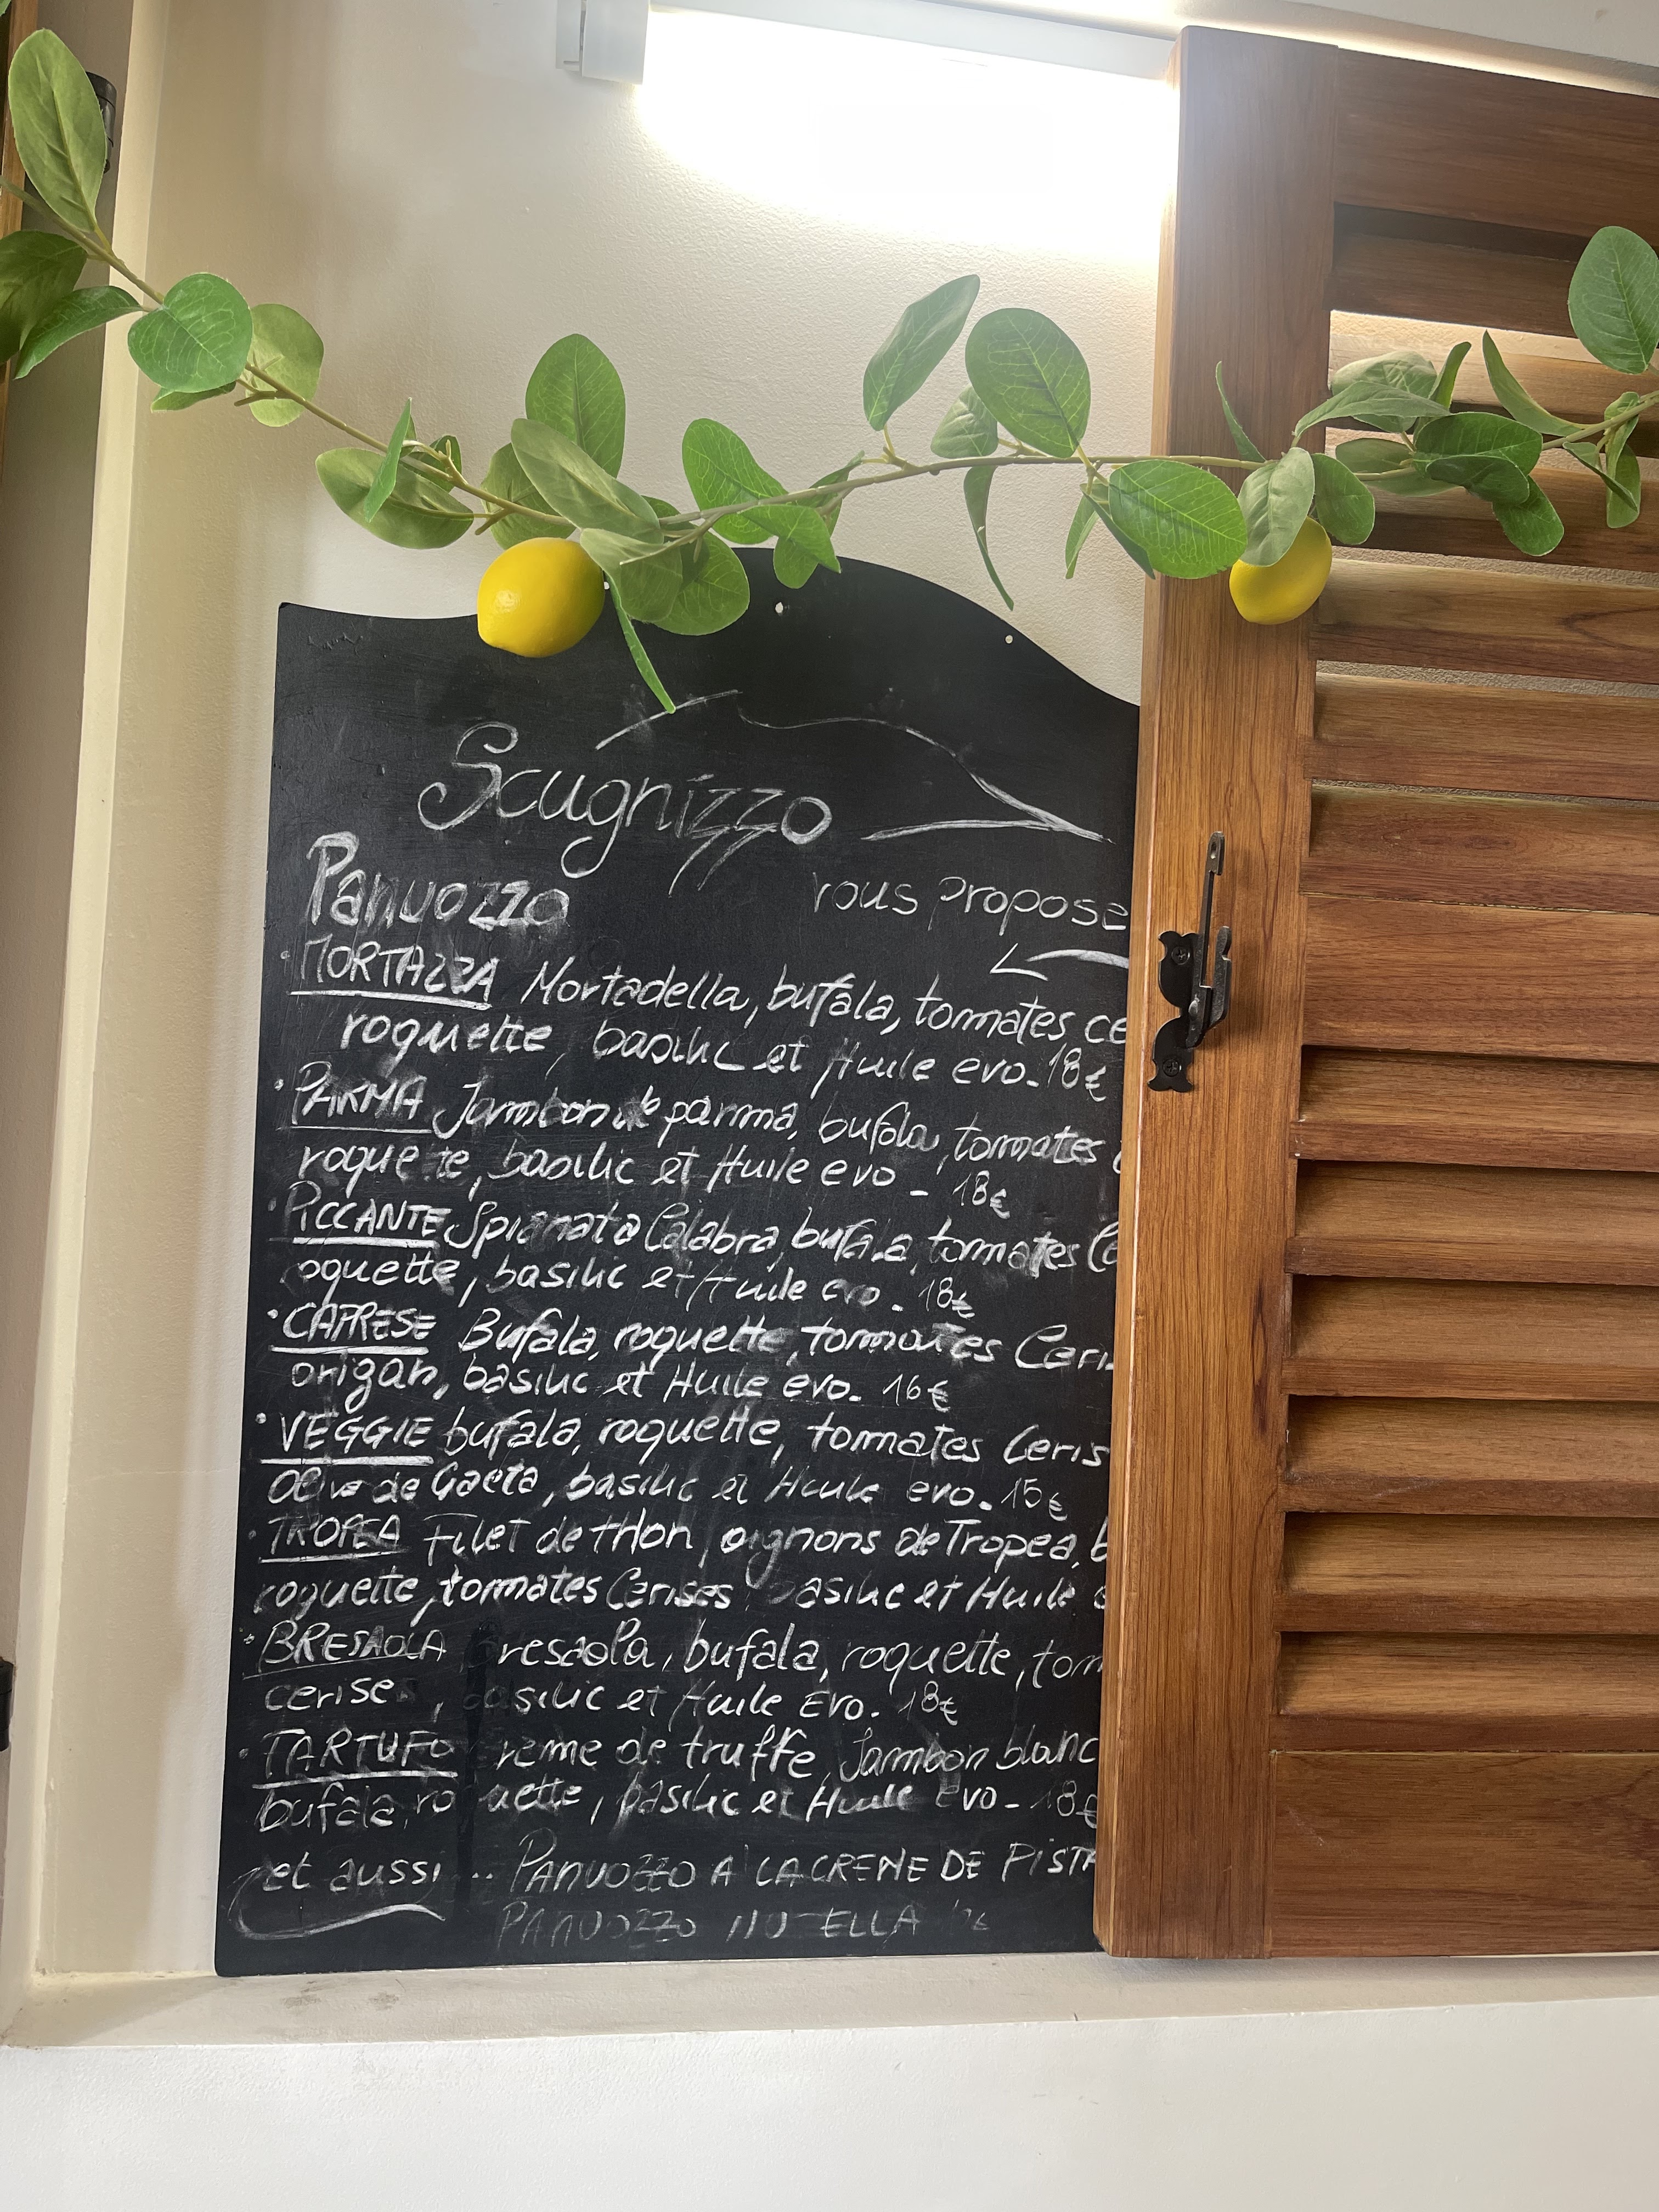 Scugnizzo
Panuozzo vous propose
MORTAZZA Mortadella, bufala, tommates ce
roquette, basilic et Huile evo. 18€
PARMA Jambon de parma, bufala, tommates
roquette, basilic et Huile evo - 18€
PICCANTE Spianata Calabra, bufala, tommates Ce
roquette, basilic et Huile evo. 18€
CAPRESE Bufala, roquette, tommates Ceris
origan, basilic et Huile evo. 16€
VEGGIE bufala, roquette, tommates Ceris
Olive de Gaeta, basilic et Huile evo. 15€
TROPEA Filet de tHon, oignons de Tropea, b
roquette, tommates Cerises basilic et Huile
BRESAOLA Bresaola, bufala, roquette, tom
cerises, basilic et Huile Evo. 18€
TARTUFO Creme de truffe, Jambon blanc
bufala, roquette, basilic et Huile Evo - 18€
et aussi... PANUOZZO A LA CREME DE PISTA
PANUOZZO NUTELLA